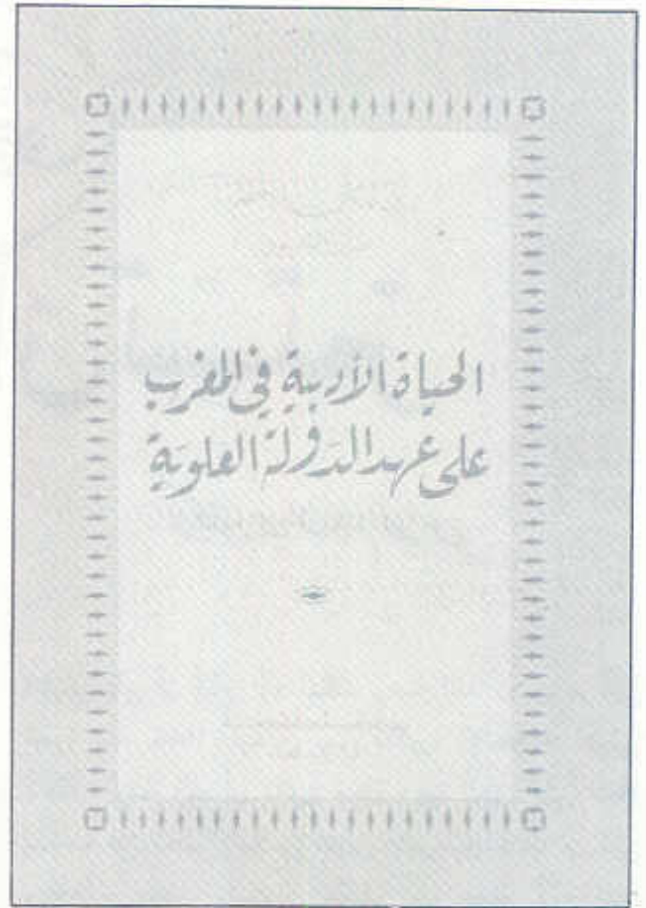 الحياة الأدبية في المغرب
على عهد الدولة العلوية